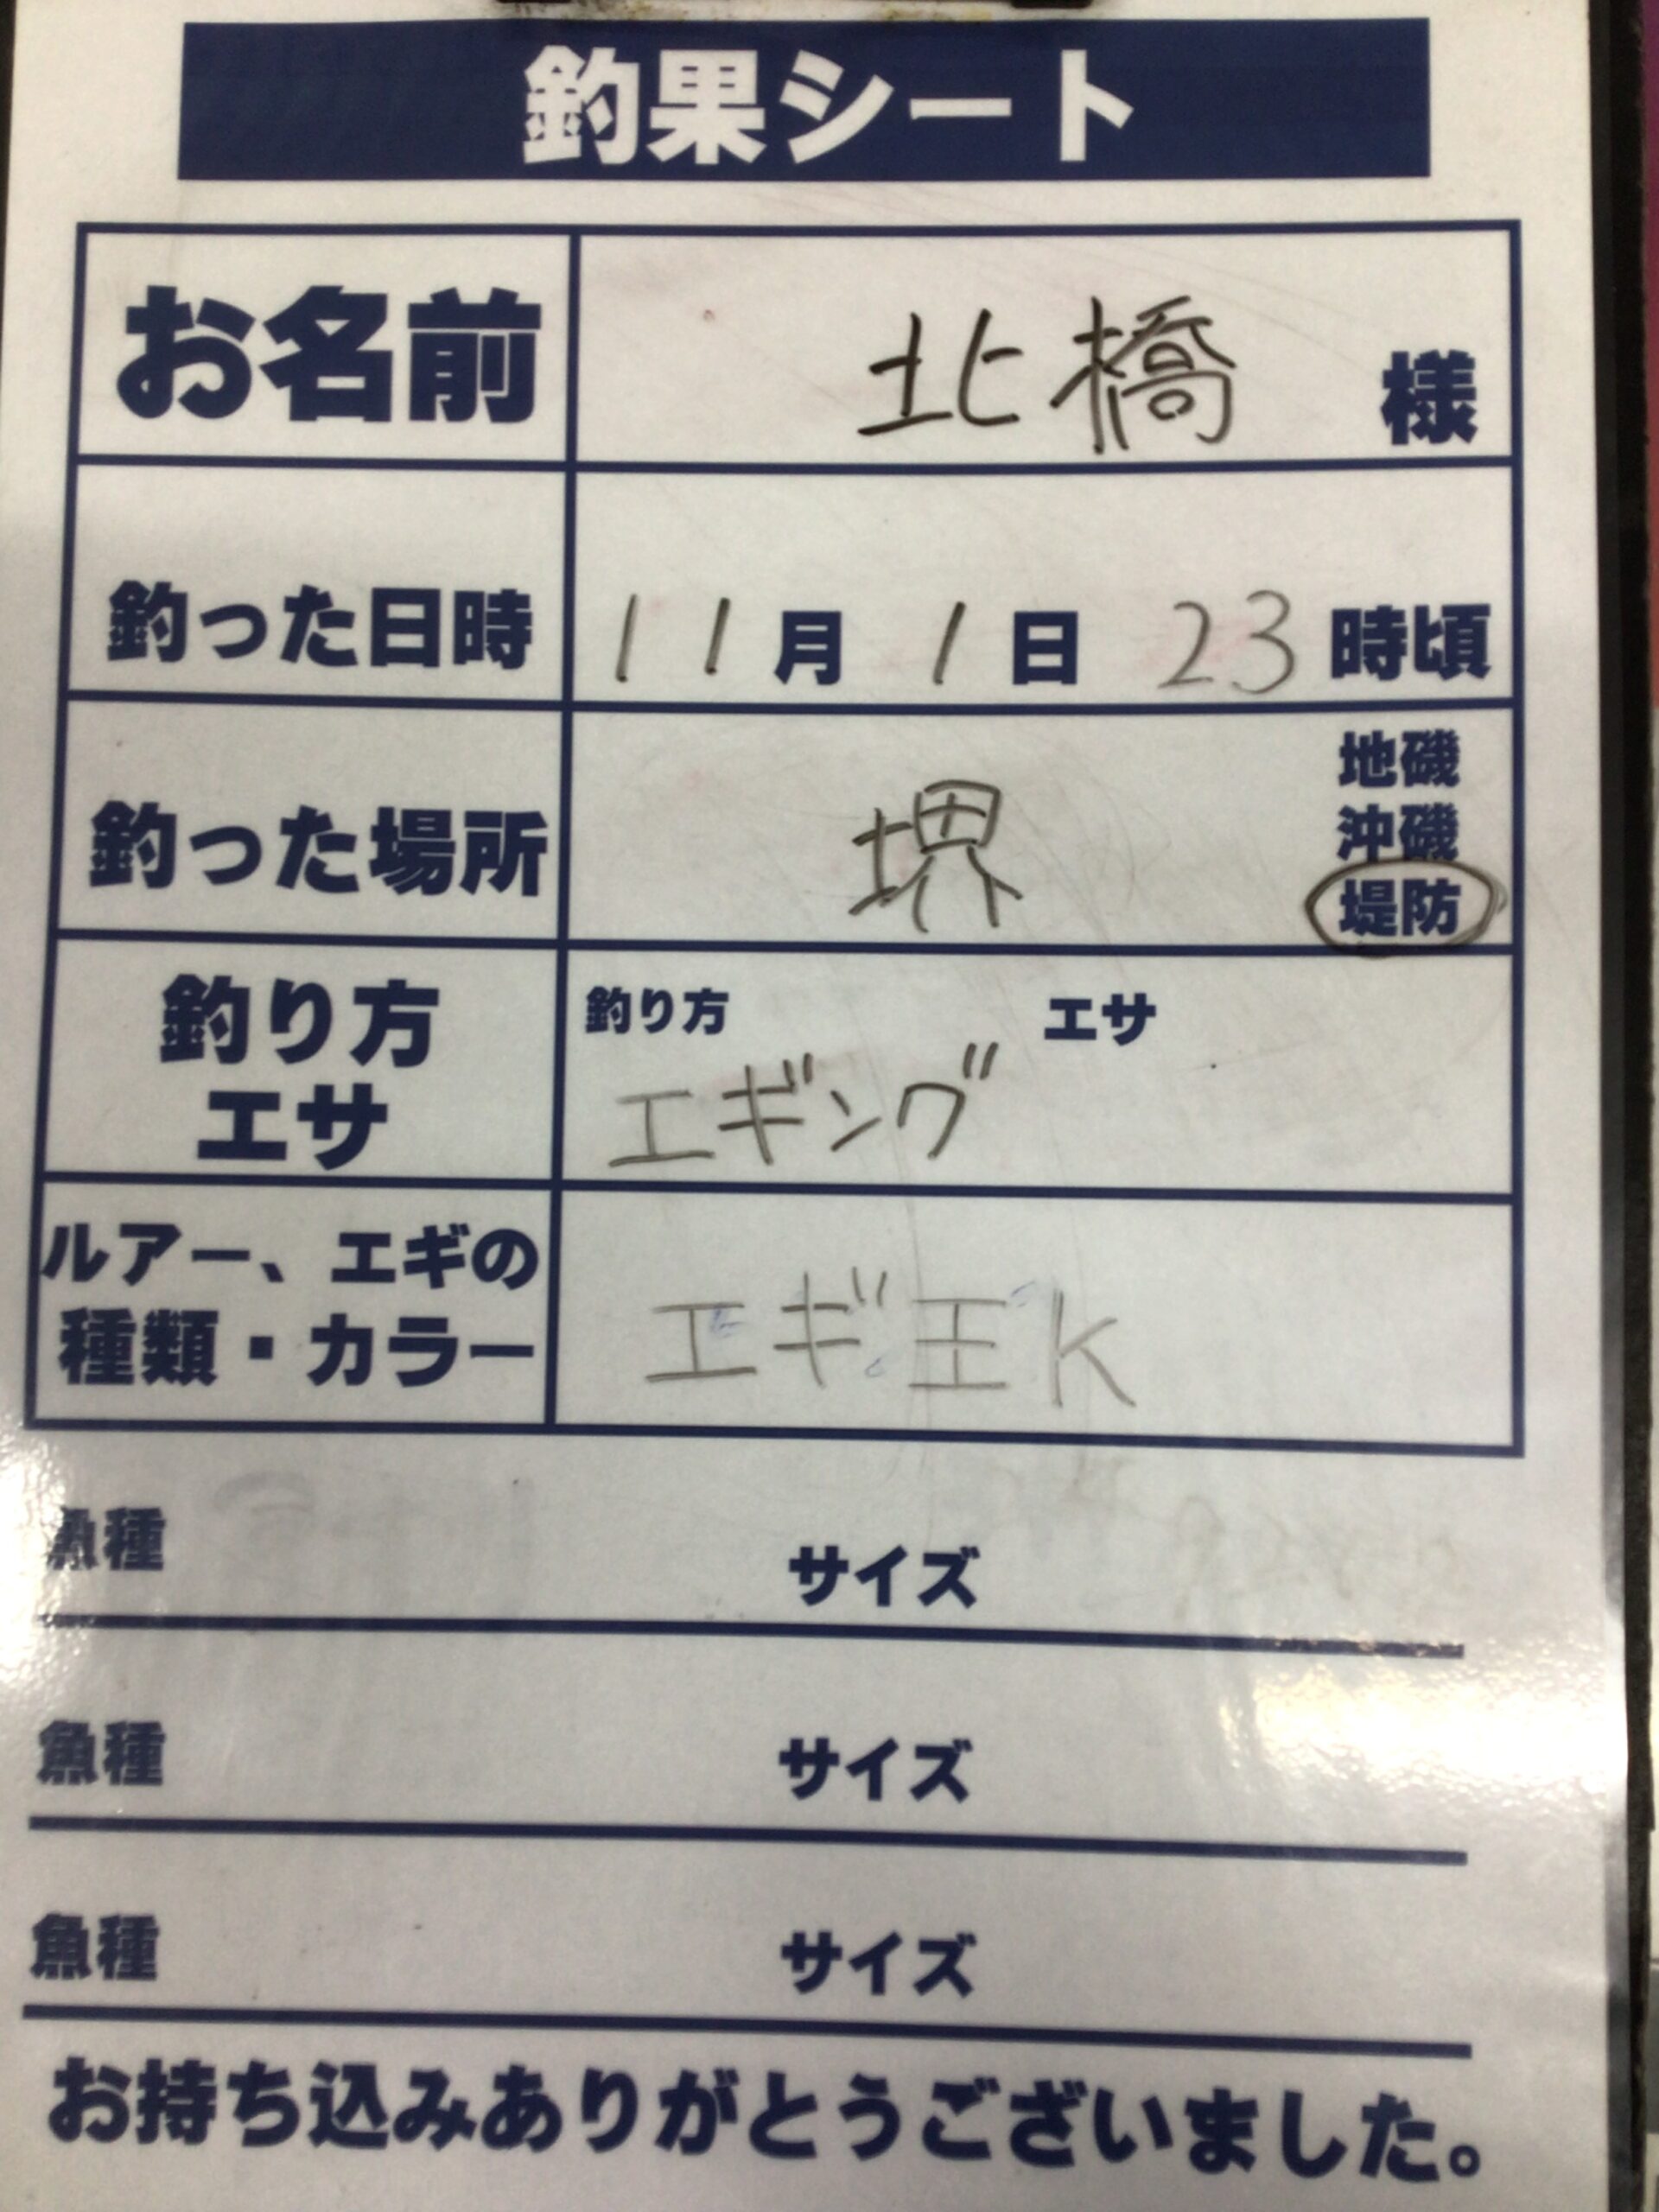 釣果シート
お名前 北橋 様
釣った日時 11月1日 23時頃
釣った場所 堺 地磯
沖磯
堤防
釣り方
エサ
釣り方 エサ
エギング
ルアー、エギの
種類・カラー
エギ王K
魚種 サイズ
魚種 サイズ
魚種 サイズ
お持ち込みありがとうございました。